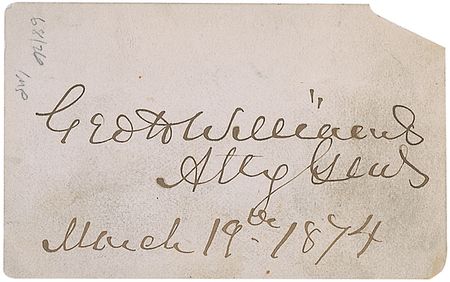 Geo H Williams
Atty Genl
March 19th 1874